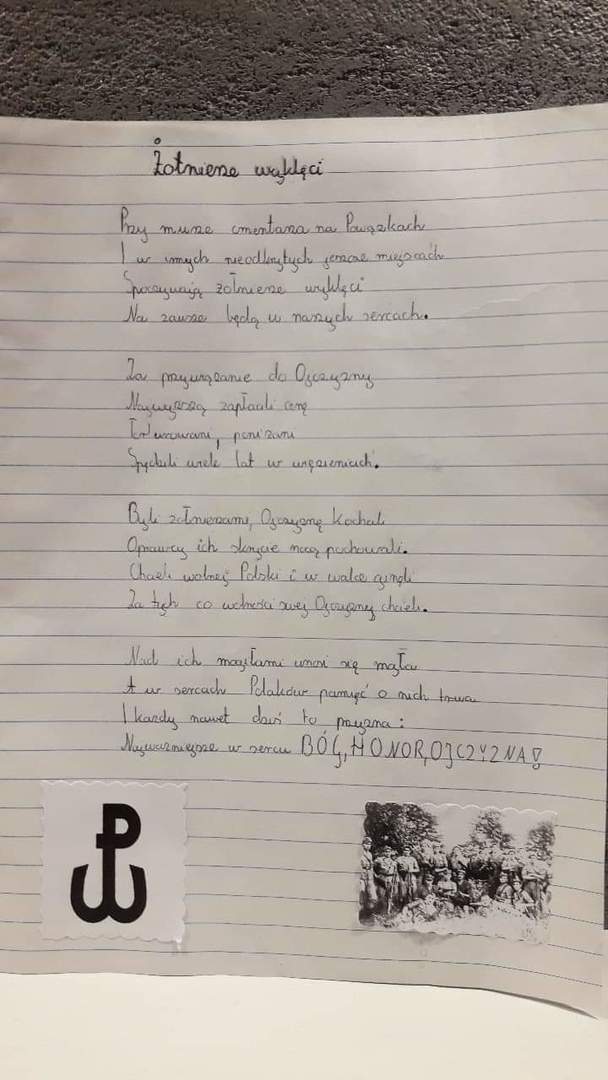 Żołnierze wyklęci
Przy murze cmentarza na Powązkach
I w innych nieodkrytych jeszcze miejscach
Spoczywają żołnierze wyklęci
Na zawsze będą w naszych sercach.
Za przywiązanie do Ojczyzny
Najwyższą zapłacili cenę
Torturowani, poniżani
Spędzili wiele lat w więzieniach.
Byli żołnierzami, Ojczyznę kochali
Oprawcy ich skrycie nocą pochowali.
Chcieli wolnej Polski i w walce ginęli
Za tych co wolności swej Ojczyzny chcieli.
Nad ich mogiłami unosi się mgła
A w sercach Polaków pamięć o nich trwa
I każdy nawet dziś to przyzna:
Najważniejsze w sercu BÓG, HONOR, OJCZYZNA!